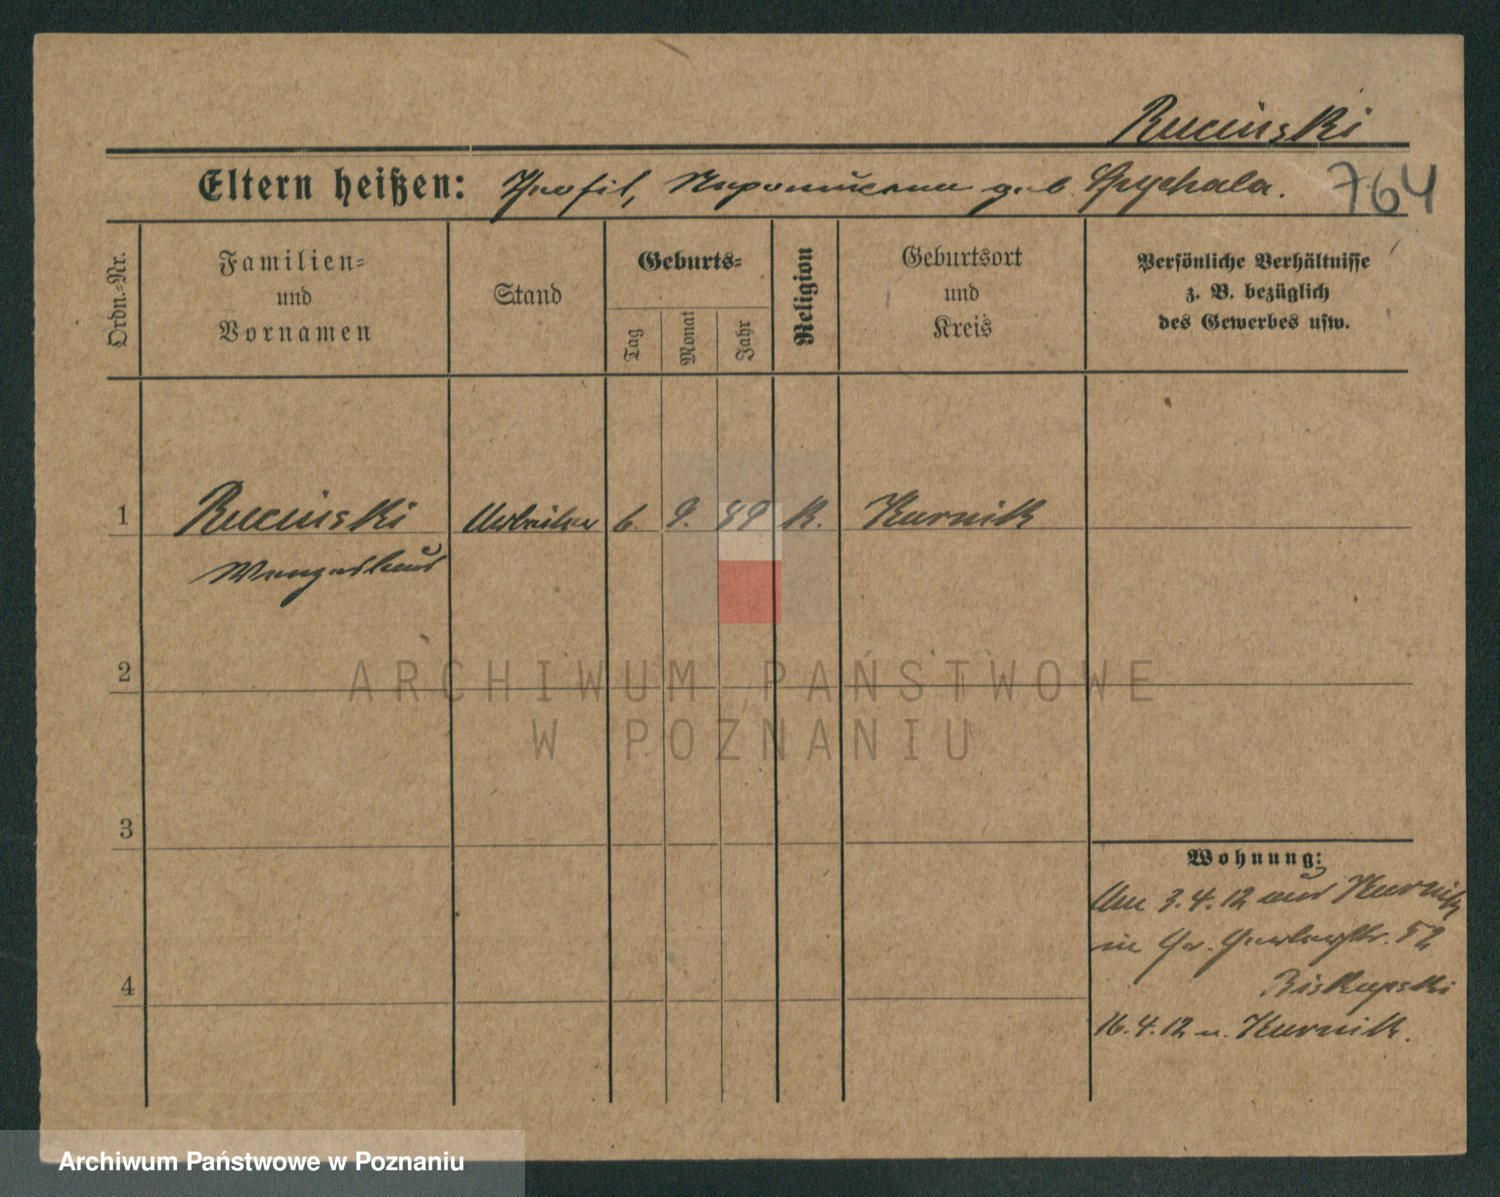 Rucinski
Eltern heißen: Teofil, Nepomucena geb. Spychala.
764
Ordn.-Nr.
Familien-
und
Vornamen
Stand
Geburts-
Tag
Monat
Jahr
Religion
Geburtsort
und
Kreis
Persönliche Verhältnisse
z. B. bezüglich
des Gewerbes usw.
1 Rucinski Arbeiter 6. 9. 89 K. Kurnik
Wenzeslaus
2
ARCHIWUM PAŃSTWOWE
W POZNANIU
3
4
Wohnung:
Am 3.4.12 aus Kurnik
in Gr. 52
Biskupski
16.4.12 n. Kurnik.
Archiwum Państwowe w Poznaniu